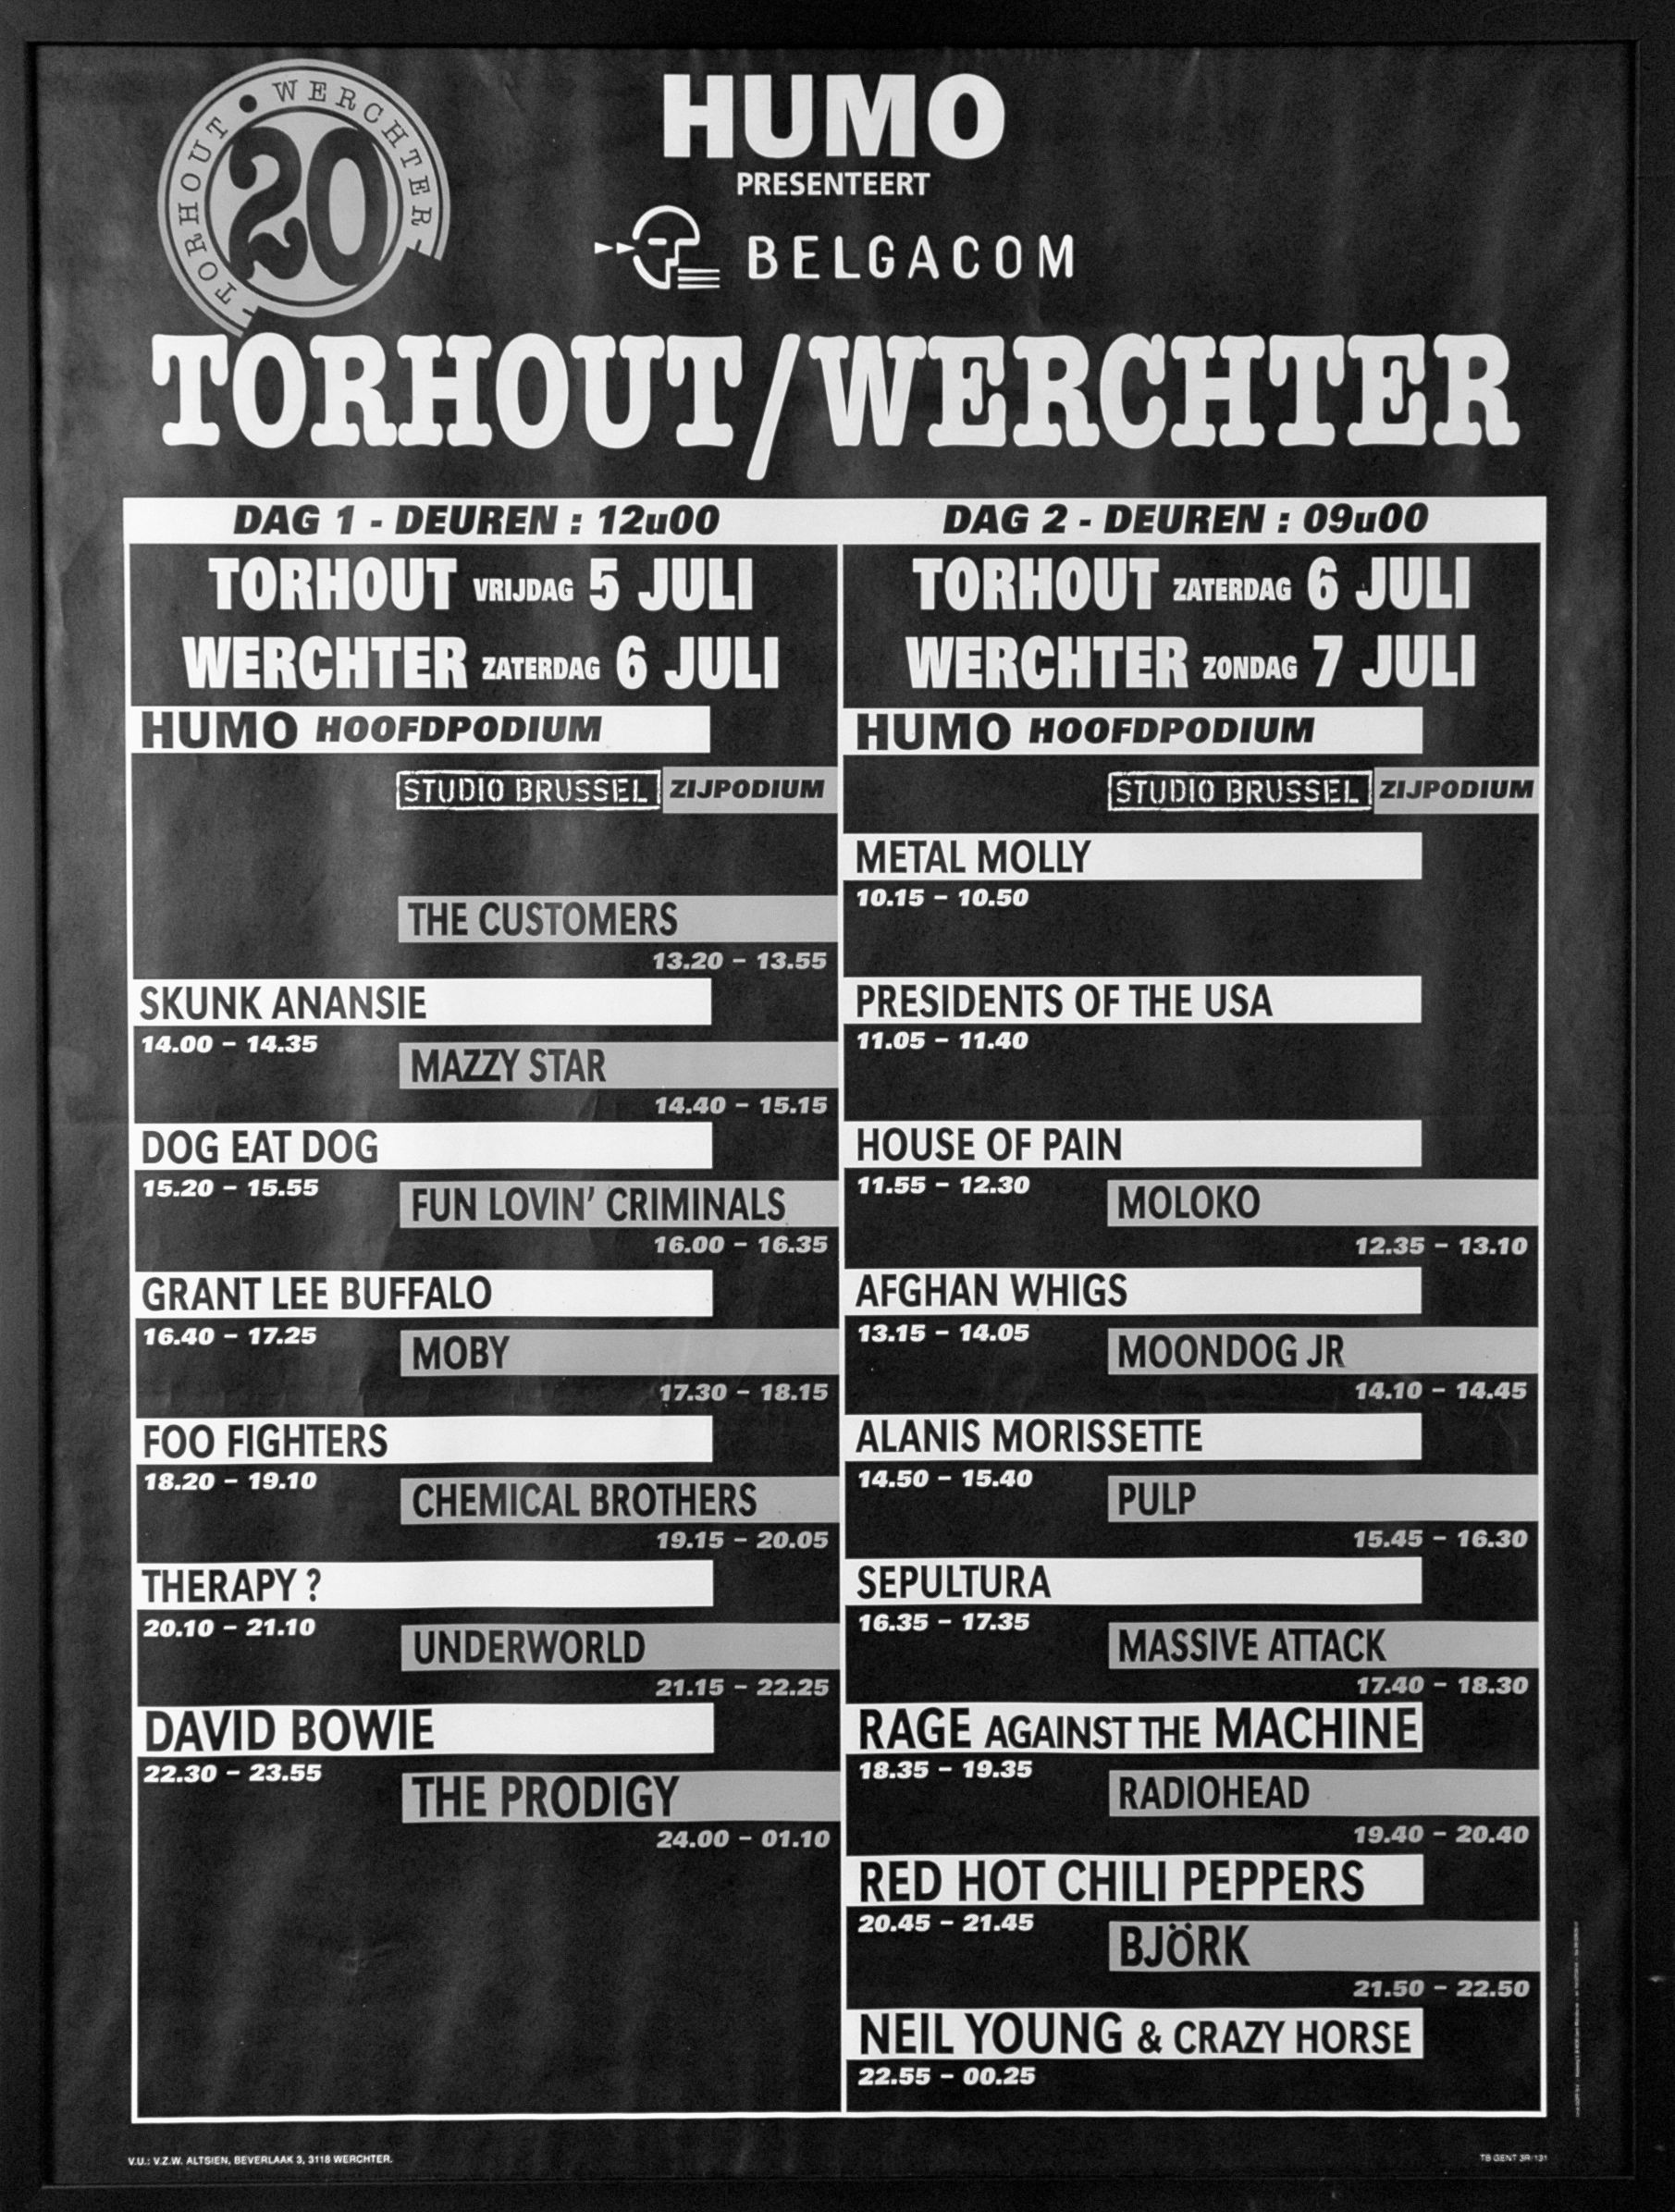 TORHOUT • WERCHTER
20
HUMO
PRESENTEERT
BELGACOM
TORHOUT/WERCHTER
DAG 1 - DEUREN : 12u00
TORHOUT VRIJDAG 5 JULI
WERCHTER ZATERDAG 6 JULI
HUMO HOOFDPODIUM
STUDIO BRUSSEL ZIJPODIUM
THE CUSTOMERS
13.20 – 13.55
SKUNK ANANSIE
14.00 – 14.35
MAZZY STAR
14.40 – 15.15
DOG EAT DOG
15.20 – 15.55
FUN LOVIN' CRIMINALS
16.00 – 16.35
GRANT LEE BUFFALO
16.40 – 17.25
MOBY
17.30 – 18.15
FOO FIGHTERS
18.20 – 19.10
CHEMICAL BROTHERS
19.15 – 20.05
THERAPY ?
20.10 – 21.10
UNDERWORLD
21.15 – 22.25
DAVID BOWIE
22.30 – 23.55
THE PRODIGY
24.00 – 01.10
DAG 2 - DEUREN : 09u00
TORHOUT ZATERDAG 6 JULI
WERCHTER ZONDAG 7 JULI
HUMO HOOFDPODIUM
STUDIO BRUSSEL ZIJPODIUM
METAL MOLLY
10.15 – 10.50
PRESIDENTS OF THE USA
11.05 – 11.40
HOUSE OF PAIN
11.55 – 12.30
MOLOKO
12.35 – 13.10
AFGHAN WHIGS
13.15 – 14.05
MOONDOG JR
14.10 – 14.45
ALANIS MORISSETTE
14.50 – 15.40
PULP
15.45 – 16.30
SEPULTURA
16.35 – 17.35
MASSIVE ATTACK
17.40 – 18.30
RAGE AGAINST THE MACHINE
18.35 – 19.35
RADIOHEAD
19.40 – 20.40
RED HOT CHILI PEPPERS
20.45 – 21.45
BJÖRK
21.50 – 22.50
NEIL YOUNG & CRAZY HORSE
22.55 – 00.25
V.U.: V.Z.W. ALTSIEN, BEVERLAAK 3, 3118 WERCHTER.
TB GENT 3R/131